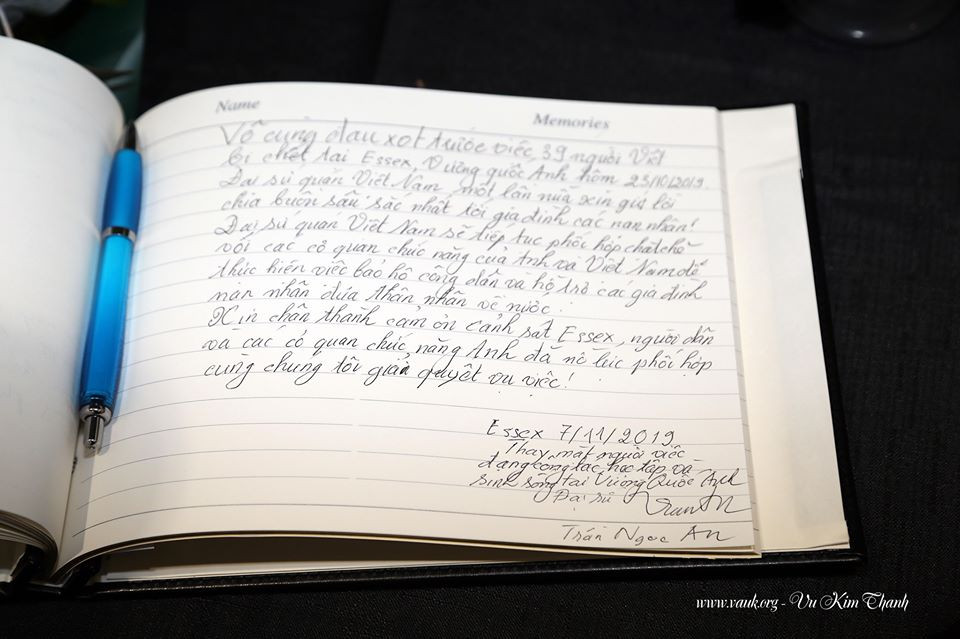 Name Memories
Vô cùng đau xót trước việc 39 người Việt
bị chết tại Essex, Vương quốc Anh hôm 23/10/2019.
Đại sứ quán Việt Nam một lần nữa xin gửi lời
chia buồn sâu sắc nhất tới gia đình các nạn nhân!
Đại sứ quán Việt Nam sẽ tiếp tục phối hợp chặt chẽ
với các cơ quan chức năng của Anh và Việt Nam để
thực hiện việc bảo hộ công dân và hỗ trợ các gia đình
nạn nhân đưa thân nhân về nước.
Xin chân thành cảm ơn Cảnh sát Essex, người dân
và các cơ quan chức năng Anh đã nỗ lực phối hợp
cùng chúng tôi giải quyết vụ việc!
Essex 7/11/2019
Thay mặt người Việt
đang công tác, học tập và
sinh sống tại Vương Quốc Anh
Đại sứ
Trần Ngọc An
www.vauk.org - Vu Kim Thanh